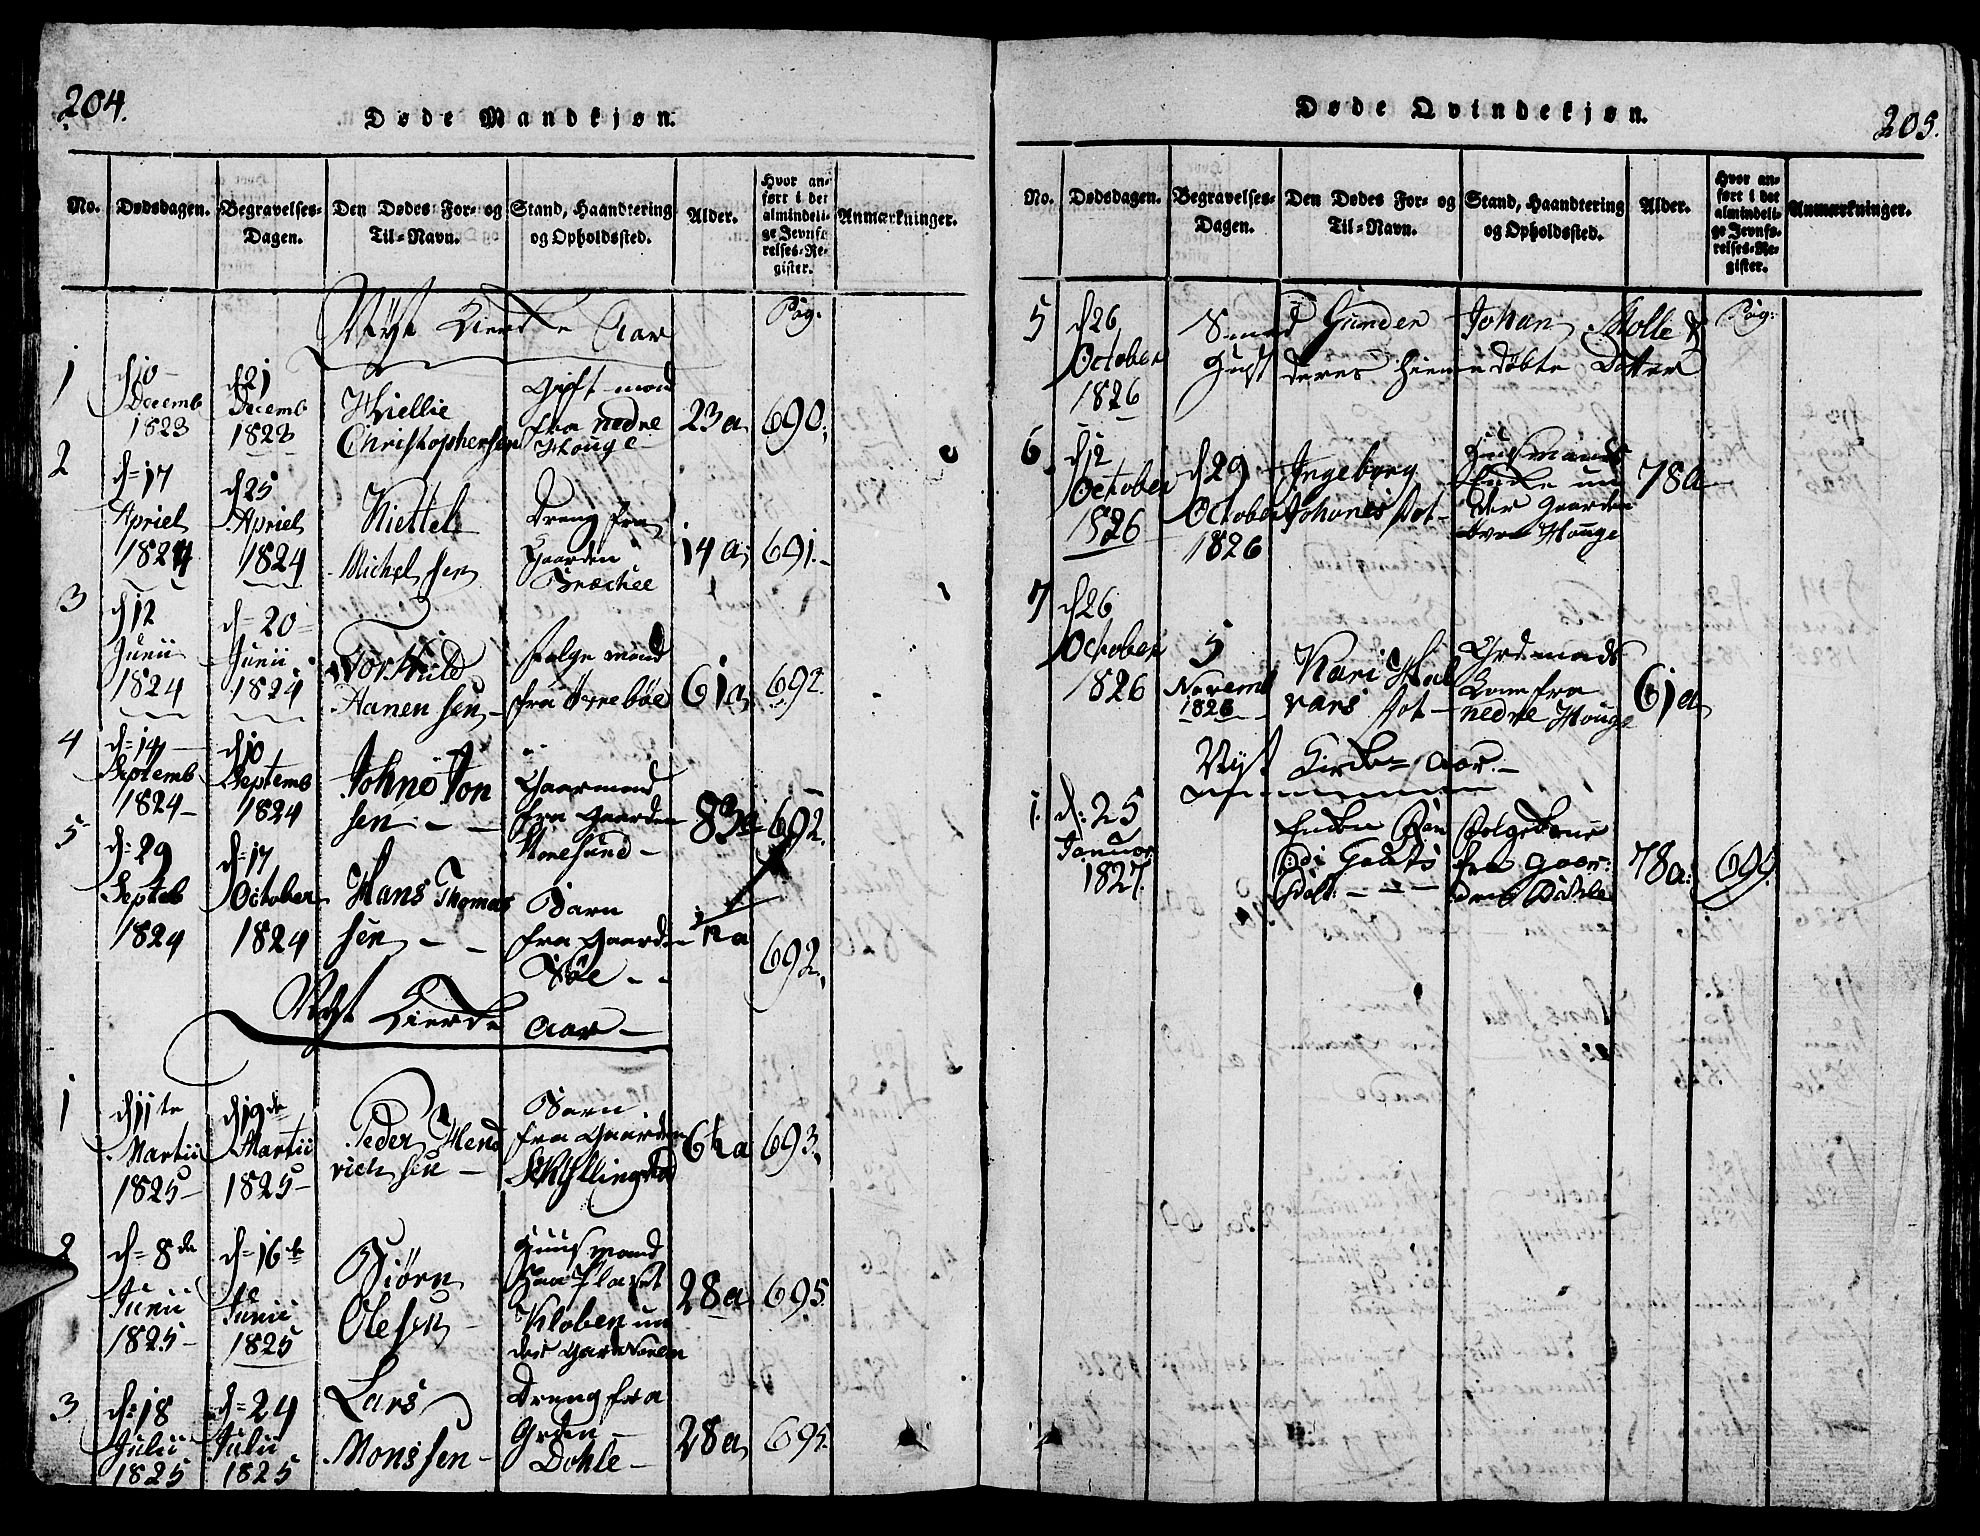 204.
Døde Mandkjøn.
No.
Dødsdagen.
Begravelses-
Dagen.
Den Dødes For- og
Til-Navn.
Stand, Haandtering
og Opholdssted.
Alder.
Hvor an-
ført i det
almindeli-
ge Jevnfø-
relses-Re-
gister.
Anmærkninger.
Nyst Kierke Aar
Pag:
1
d 10
Decemb
1823
d 21
Decemb
1823
Kiellie
Christophersen
Gift mand
fra nedre
Houge
23 a
690.
2
d= 17
Apriel
1824
d 25
Apriel
1824
Kiettel
Michelsen
Dreng fra
Gaarden
Bræckee
14 a
691.
3
d 12
Junii
1824
d= 20
Junii
1824
Torkild
Aanensen
Følge mand
fra Øvrebøe
61 a
692.
4
d= 14
Septemb
1824
d 10
Septemb
1824
Johne Jon
sen
Gaarmand
fra Gaarden
83 a
692.
5
d: 29
Septeb
1824
d= 17
October
1824
Hans Thomas
sen
Barn
fra Gaarden
692.
Nyst Kierke Aar
1
d 11te
Martii
1825
d 19de
Martii
1825
Peder Hend
richsen
Barn
fra Gaarden
6½ a
693.
2
d= 8de
Junii
1825
d= 16de
Junii
1825
Biørn
Olesen
Huusmand
Paa Pladset
Kloben un
28 a
695.
3
d: 18
Julii
1825
d= 24
Julii
1825
Lars
Monssen
Dreng fra
Grden
Dohle
28 a
695.
Døde Qvindekjøn.
205.
No.
Dødsdagen.
Begravelses-
Dagen.
Den Dødes For- og
Til-Navn.
Stand, Haandtering
og Opholdssted.
Alder.
Hvor an-
ført i det
almindeli-
ge Jevnfø-
relses-Re-
gister.
Anmærkninger.
Pag:
5
d 26
October
1826
Gunder Johan
deres hiemedøbte Datter
6
d 12
October
1826
d 29
October
1826
Ingeborg
Johanes dot
Huusmands
Enke un
der Gaarden
øvre Houge
78 a
7
d 26
October
1826
5
Novemb
1826
Kari Hal
vars dot
Grdmands
Kone fra
nedre Houge
61 a
Nyst Kirke Aar
1.
d: 25
Januar
1827.
Enken
fra Gaar-
den Dohle
78 a:
699.